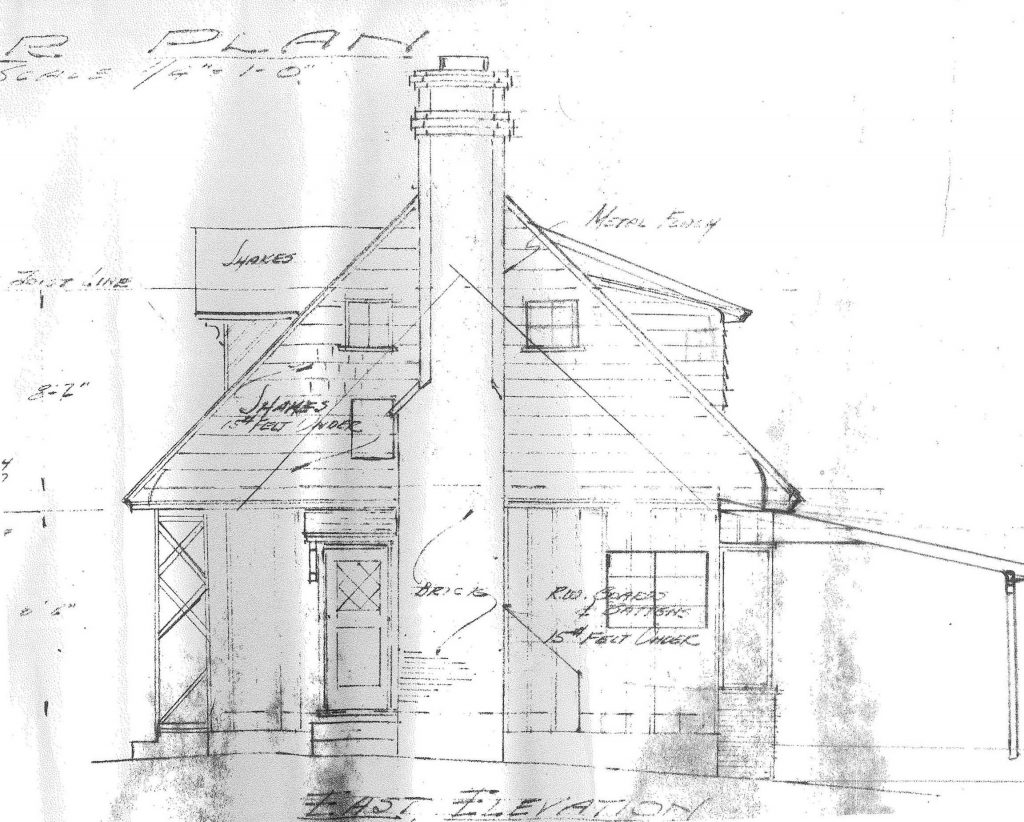 R PLAN
SCALE 1/4" = 1'-0"
METAL FLASH
SHAKES
JOIST LINE
8'-2"
SHAKES
15# FELT UNDER
BRICK
R.W. BOARDS
& BATTENS
15# FELT UNDER
EAST ELEVATION